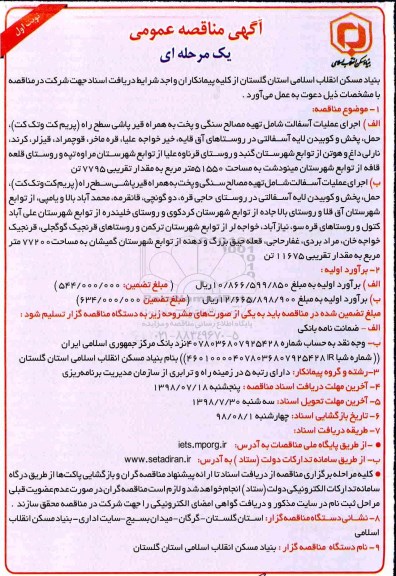 نوبت اول
آگهی مناقصه عمومی
یک مرحله ای
بنیاد مسکن انقلاب اسلامی
بنیاد مسکن انقلاب اسلامی استان گلستان از کلیه پیمانکاران واجد شرایط دریافت اسناد جهت شرکت در مناقصه
با مشخصات ذیل دعوت به عمل می‌آورد .
۱- موضوع مناقصه:
الف ) اجرای عملیات آسفالت شامل تهیه مصالح سنگی و پخت به همراه قیر پاشی سطح راه (پریم کت وتک کت)،
حمل، پخش و کوبیدن لایه آسفالتی در روستاهای آق قایه، خیر خواجه علیا، قره ماخر، قوچمراد، قیزلر، کرند،
نارلی داغ و هوتن از توابع شهرستان گنبد و روستای قرناوه علیا از توابع شهرستان مراوه تپه و روستای قلعه
قافه از توابع شهرستان مینودشت به مساحت ۵۱۵۵۰متر مربع به مقدار تقریبی ۷۷۹۵ تن
ب) اجرای عملیات آسفالت شامل تهیه مصالح سنگی و پخت به همراه قیر پاشی سطح راه (پریم کت وتک کت)،
حمل، پخش و کوبیدن لایه آسفالتی در روستای حاجی قره، دو گونچی، قانقرمه، محمد آباد بالا و یامپی، از توابع
شهرستان آق قلا و روستای بالا جاده از توابع شهرستان کردکوی و روستای خلیندره از توابع شهرستان علی آباد
کتول و روستاهای قره سو، نیازآباد، خواجه لر از توابع شهرستان ترکمن و روستاهای قرنجیک گوگجلی، قرنجیک
خواجه خان، مراد بردی، غفارحاجی، قلعه جیق بزرگ و دهنه از توابع شهرستان گمیشان به مساحت ۷۷۲۰۰ متر
مربع به مقدار تقریبی ۱۱۶۷۵ تن
۲- برآورد اولیه :
الف ) برآورد اولیه به مبلغ ۱۰/۸۶۶/۵۹۹/۸۵۰ریال ( مبلغ تضمین: ۵۴۴/۰۰۰/۰۰۰)
ب ) برآورد اولیه به مبلغ ۱۲/۶۶۵/۸۹۸/۹۰۰ریال (مبلغ تضمین ۶۳۴/۰۰۰/۰۰۰)
مبلغ تضمین شده در مناقصه باید به یکی از صورت‌های مشروحه زیر به دستگاه مناقصه گزار تسلیم شود :
الف - ضمانت نامه بانکی
ب- وجه نقد به حساب شماره ۴۰۷۸۰۳۶۸۰۷۹۲۵۴۲۸نزد بانک مرکز جمهوری اسلامی ایران
(( شماره شبا IR ۴۶۰۱۰۰۰۰۴۰۷۸۰۳۶۸۰۷۹۲۵۴۲۸)) بنام بنیاد مسکن انقلاب اسلامی استان گلستان
۳-رشته و گروه پیمانکار: دارای رتبه ۵ در زمینه راه و ترابری از سازمان مدیریت برنامه‌ریزی
۴- آخرین مهلت دریافت اسناد مناقصه : پنجشنبه ۱۳۹۸/۰۷/۱۸
۵- آخرین مهلت تحویل اسناد: سه شنبه ۱۳۹۸/۷/۳۰
۶- تاریخ بازگشایی اسناد: چهارشنبه ۹۸/۰۸/۱
۷- طریقه دریافت اسناد:
الف- از طریق پایگاه ملی مناقصات به آدرس: iets.mporg.ir
ب- از طریق سامانه تدارکات دولت (ستاد ) به آدرس: www.setadiran.ir
● کلیه مراحل برگزاری مناقصه از دریافت اسناد تا ارائه پیشنهاد مناقصه گران و بازگشایی پاکت‌ها از طریق درگاه
سامانه تدارکات الکترونیکی دولت (ستاد ) انجام خواهد شد و لازم است مناقصه گران در صورت عدم عضویت قبلی
مراحل ثبت نام در سایت مذکور و دریافت گواهی امضای الکترونیکی را جهت شرکت در مناقصه محقق سازند .
۸- نشانی دستگاه مناقصه گزار : استان گلستان- گرگان- میدان بسیج- سایت اداری- بنیاد مسکن انقلاب
اسلامی
۹- نام دستگاه مناقصه گزار : بنیاد مسکن انقلاب اسلامی استان گلستان